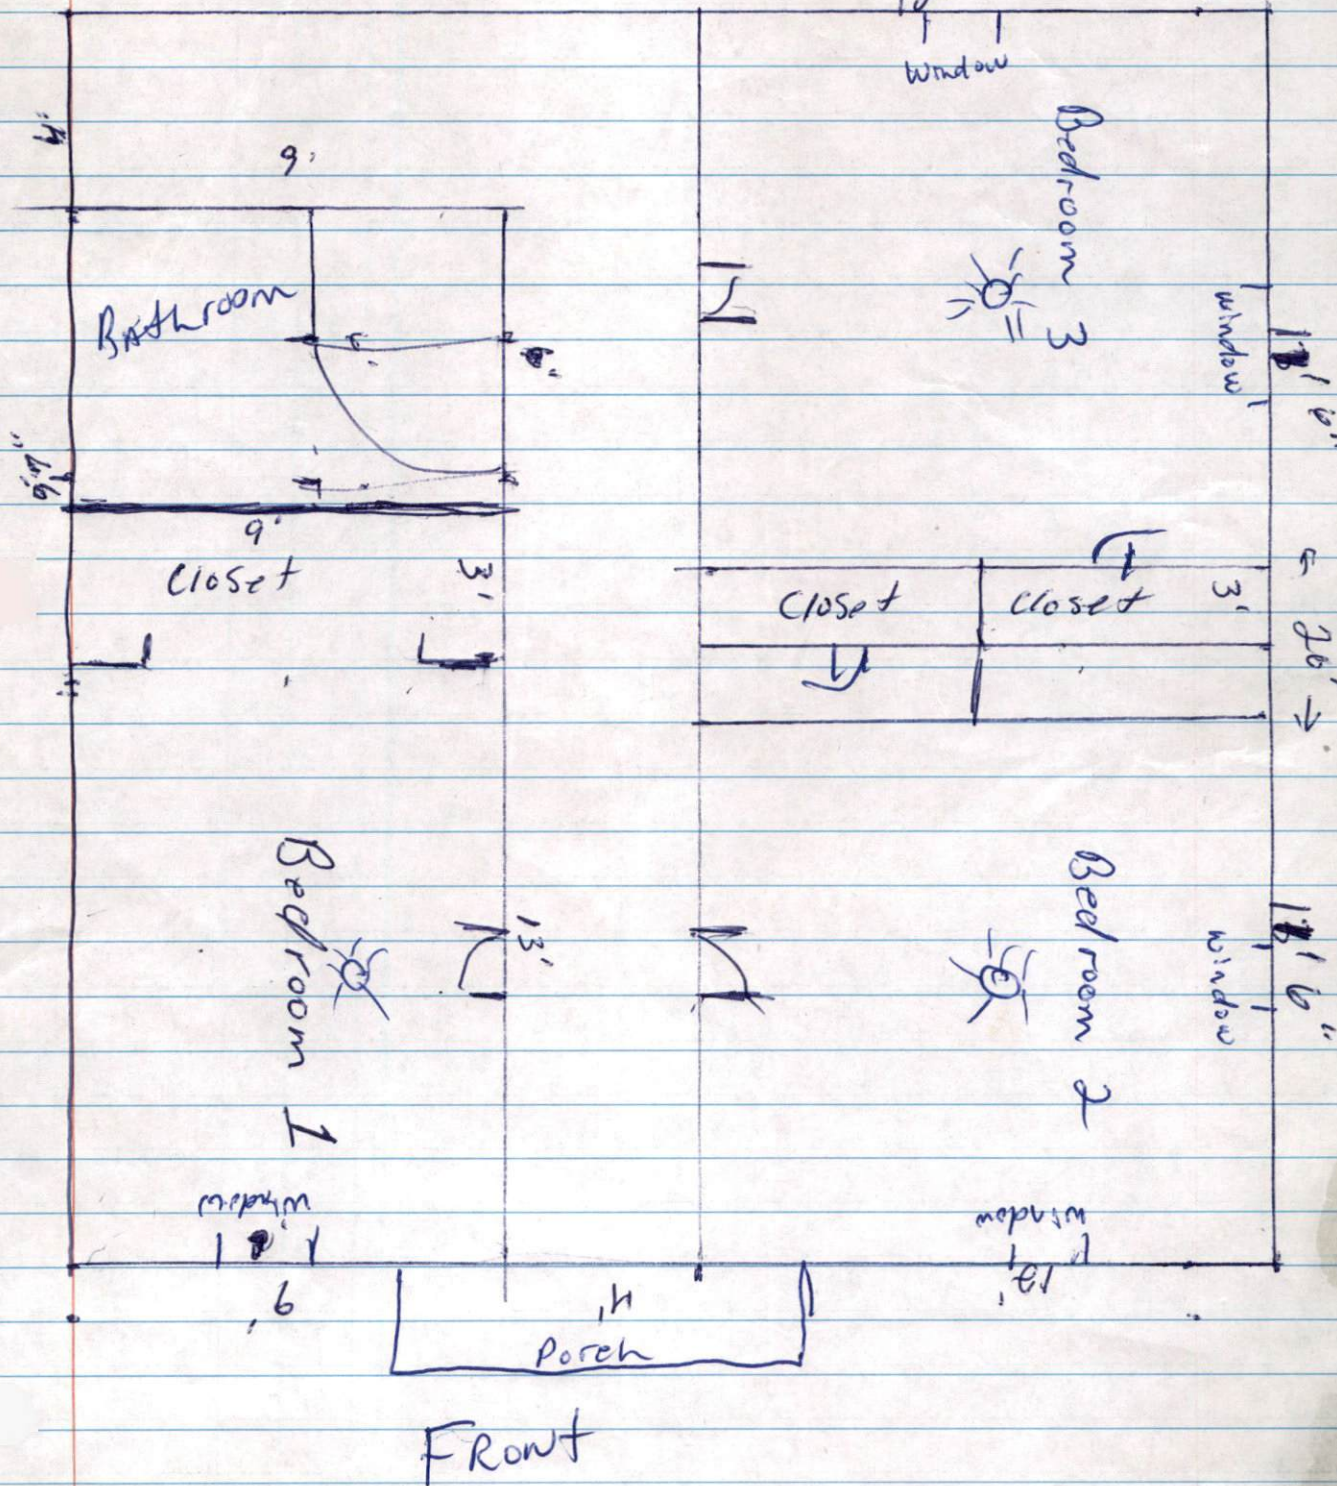 window
Bedroom 3
4'
9'
window
Bathroom
9'
Closet
3'
Closet
Closet
3'
← 26' →
Bedroom 1
13'
Bedroom 2
window
window
window
9'
4'
12'
Porch
FRONT